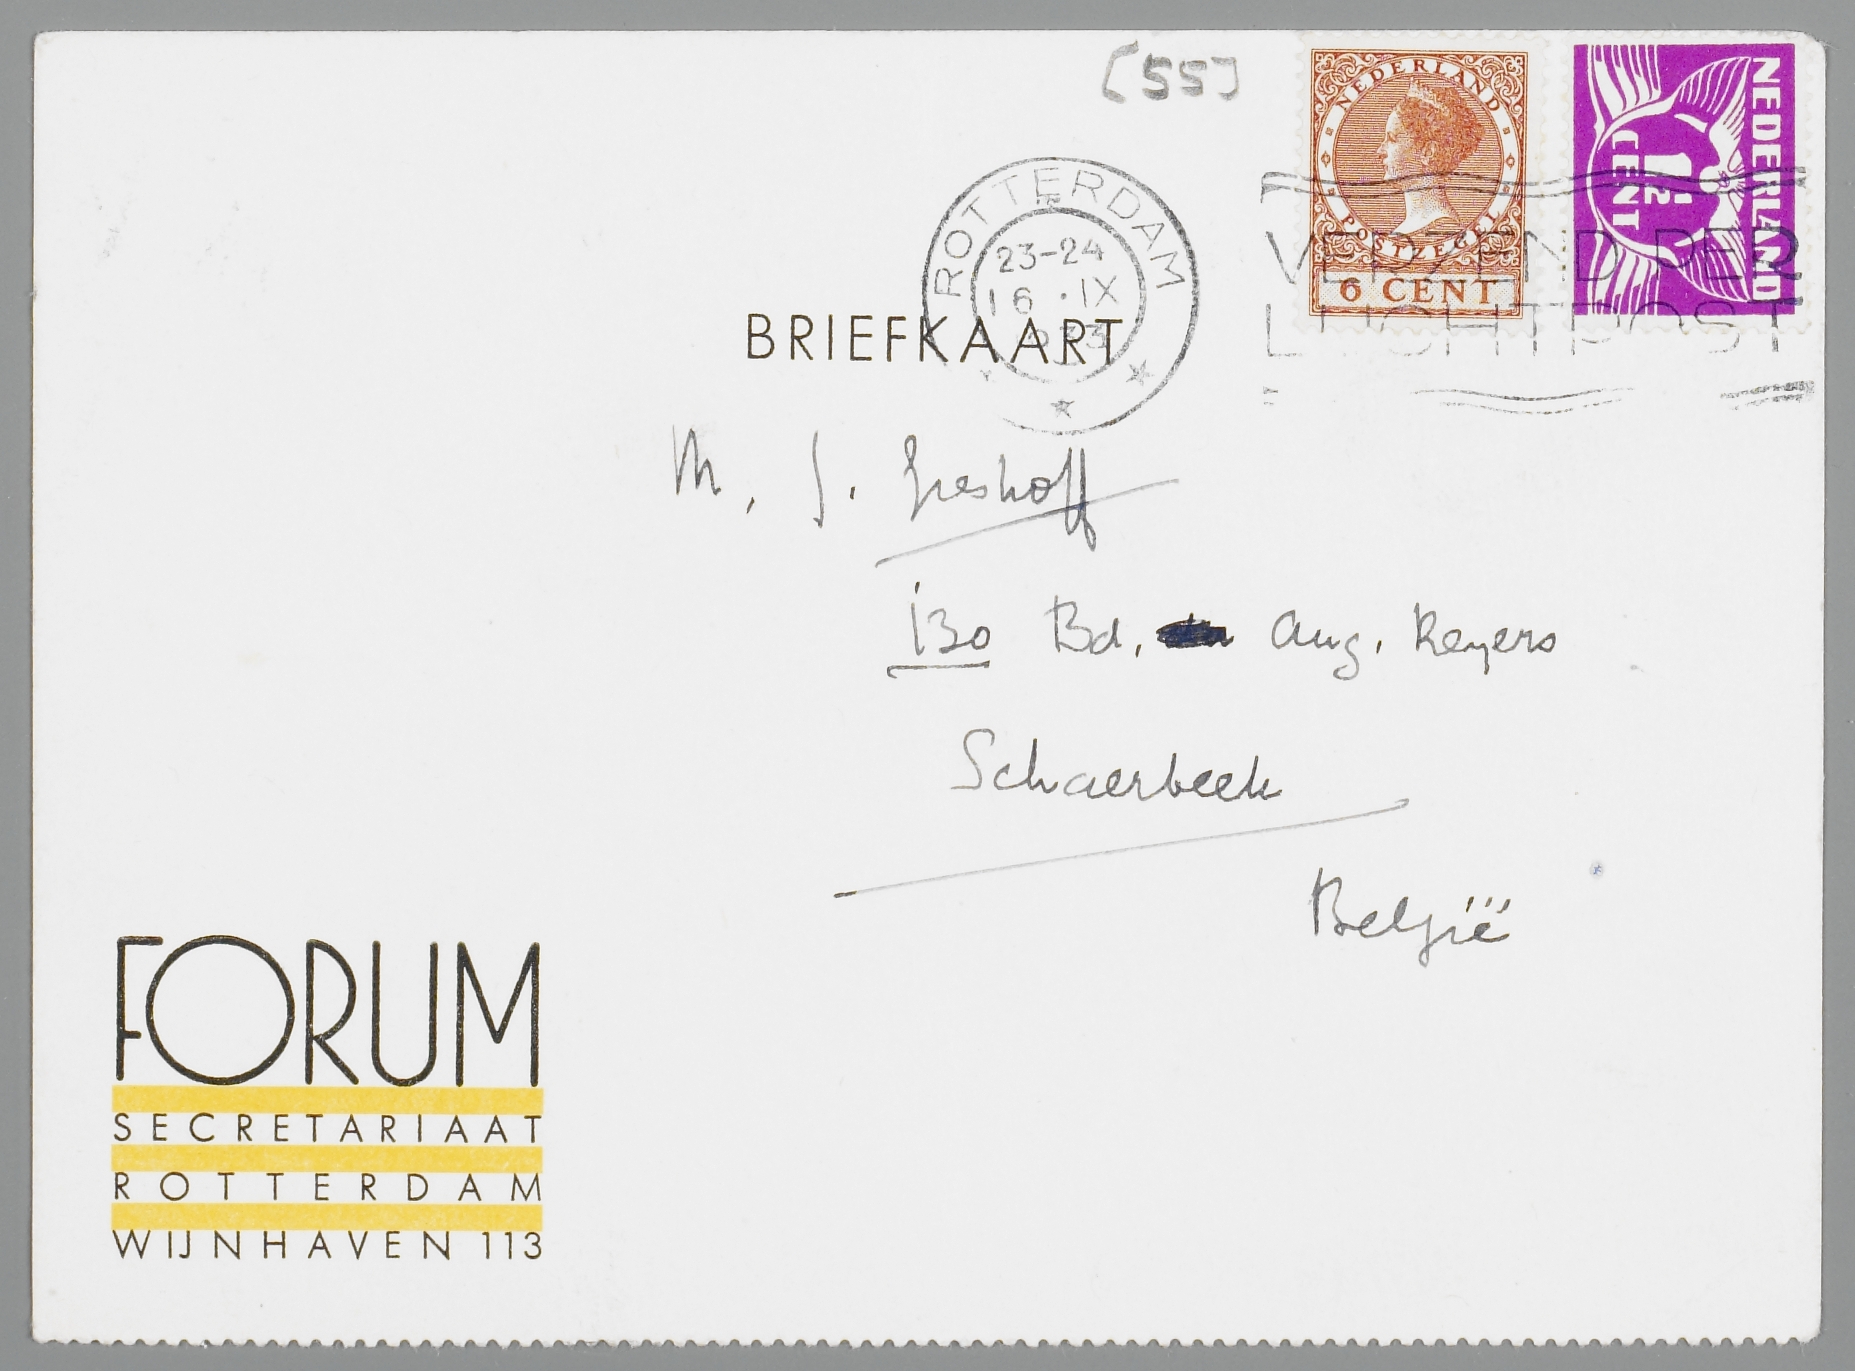 [55]
NEDERLAND
POSTZEGEL
6 CENT
NEDERLAND
1½
CENT
ROTTERDAM
23-24
16 .IX
1933
VERZEND PER
LUCHTPOST
BRIEFKAART
M. J. Greshoff
130 Bd. Aug. Reyers
Schaerbeek
België
FORUM
SECRETARIAAT
ROTTERDAM
WIJNHAVEN 113